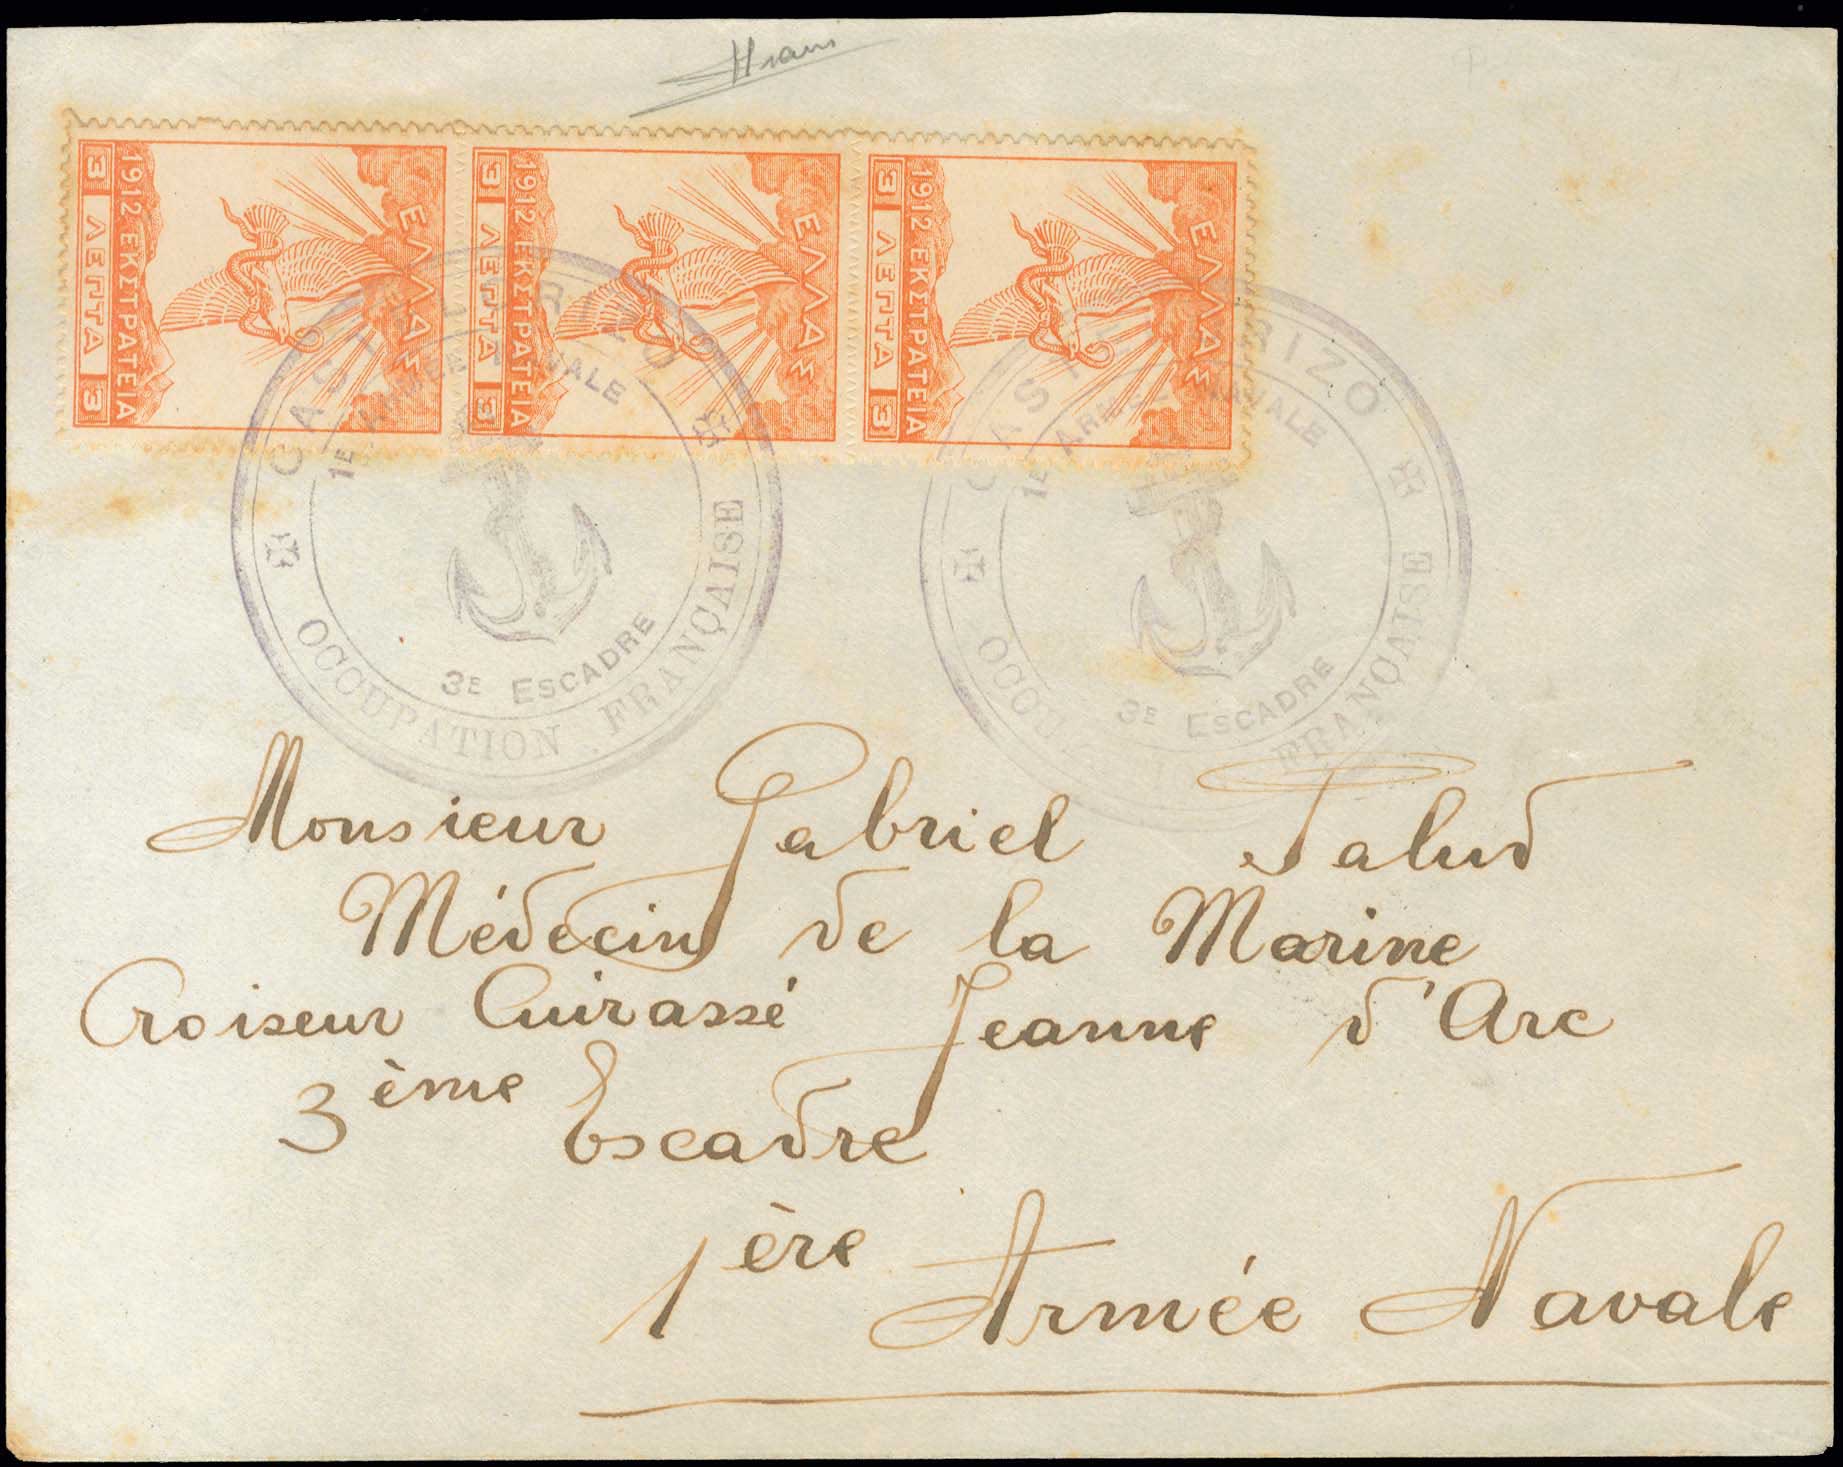 ΕΛΛΑΣ
1912 ΕΚΣΤΡΑΤΕΙΑ
3 ΛΕΠΤΑ 3
ΕΛΛΑΣ
1912 ΕΚΣΤΡΑΤΕΙΑ
3 ΛΕΠΤΑ 3
ΕΛΛΑΣ
1912 ΕΚΣΤΡΑΤΕΙΑ
3 ΛΕΠΤΑ 3
CASTELLORIZO
1E ARMÉE NAVALE
3E ESCADRE
OCCUPATION FRANÇAISE
CASTELLORIZO
1E ARMÉE NAVALE
3E ESCADRE
OCCUPATION FRANÇAISE
Monsieur Gabriel Palud
Médecin de la Marine
Croiseur Cuirassé Jeanne d'Arc
3ème Escadre
1ère Armée Navale